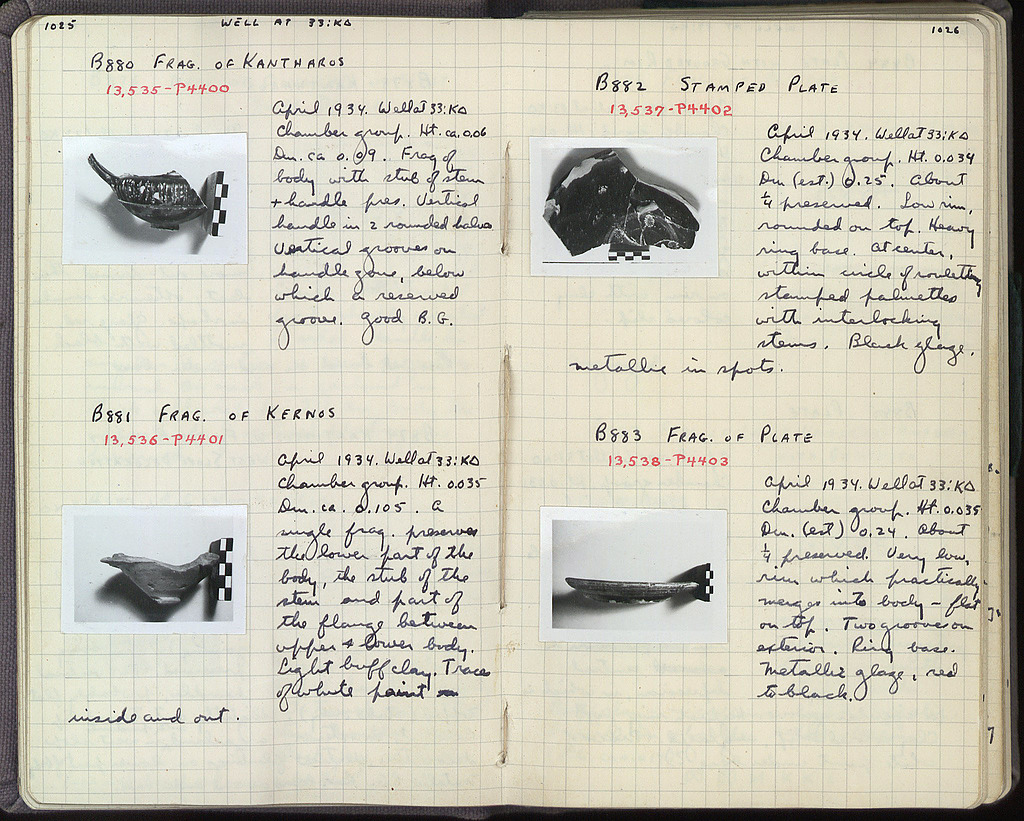 1025
WELL AT 33:KΔ
B880 FRAG. OF KANTHAROS
13,535-P4400
April 1934. Well at 33:KΔ
Chamber group. Ht. ca. 0.06
Dm. ca 0.09. Frag of
body with stub of stem
+ handle pres. Vertical
handle in 2 rounded halves
Vertical grooves on
handle zone, below
which a reserved
groove. Good B.G.
B881 FRAG. OF KERNOS
13,536-P4401
April 1934. Well at 33:KΔ
Chamber group. Ht. 0.035
Dm. ca. 0.105. A
single frag. preserves
the lower part of the
body, the stub of the
stem and part of
the flange between
upper + lower body.
Light buff clay. Traces
of white paint
inside and out.
1026
B882 STAMPED PLATE
13,537-P4402
April 1934. Well at 33:KΔ
Chamber group. Ht. 0.034
Dm (est.) 0.25. About
1/4 preserved. Low rim,
rounded on top. Heavy
ring base. At center,
within circle of rouletting
stamped palmettes
with interlocking
stems. Black glaze,
metallic in spots.
B883 FRAG. OF PLATE
13,538-P4403
April 1934. Well at 33:KΔ
Chamber group. Ht. 0.035
Dm. (est) 0.24. About
1/4 preserved. Very low,
rim which practically
merges into body - flat
on top. Two grooves on
exterior. Ring base.
Metallic glaze, red
to black.